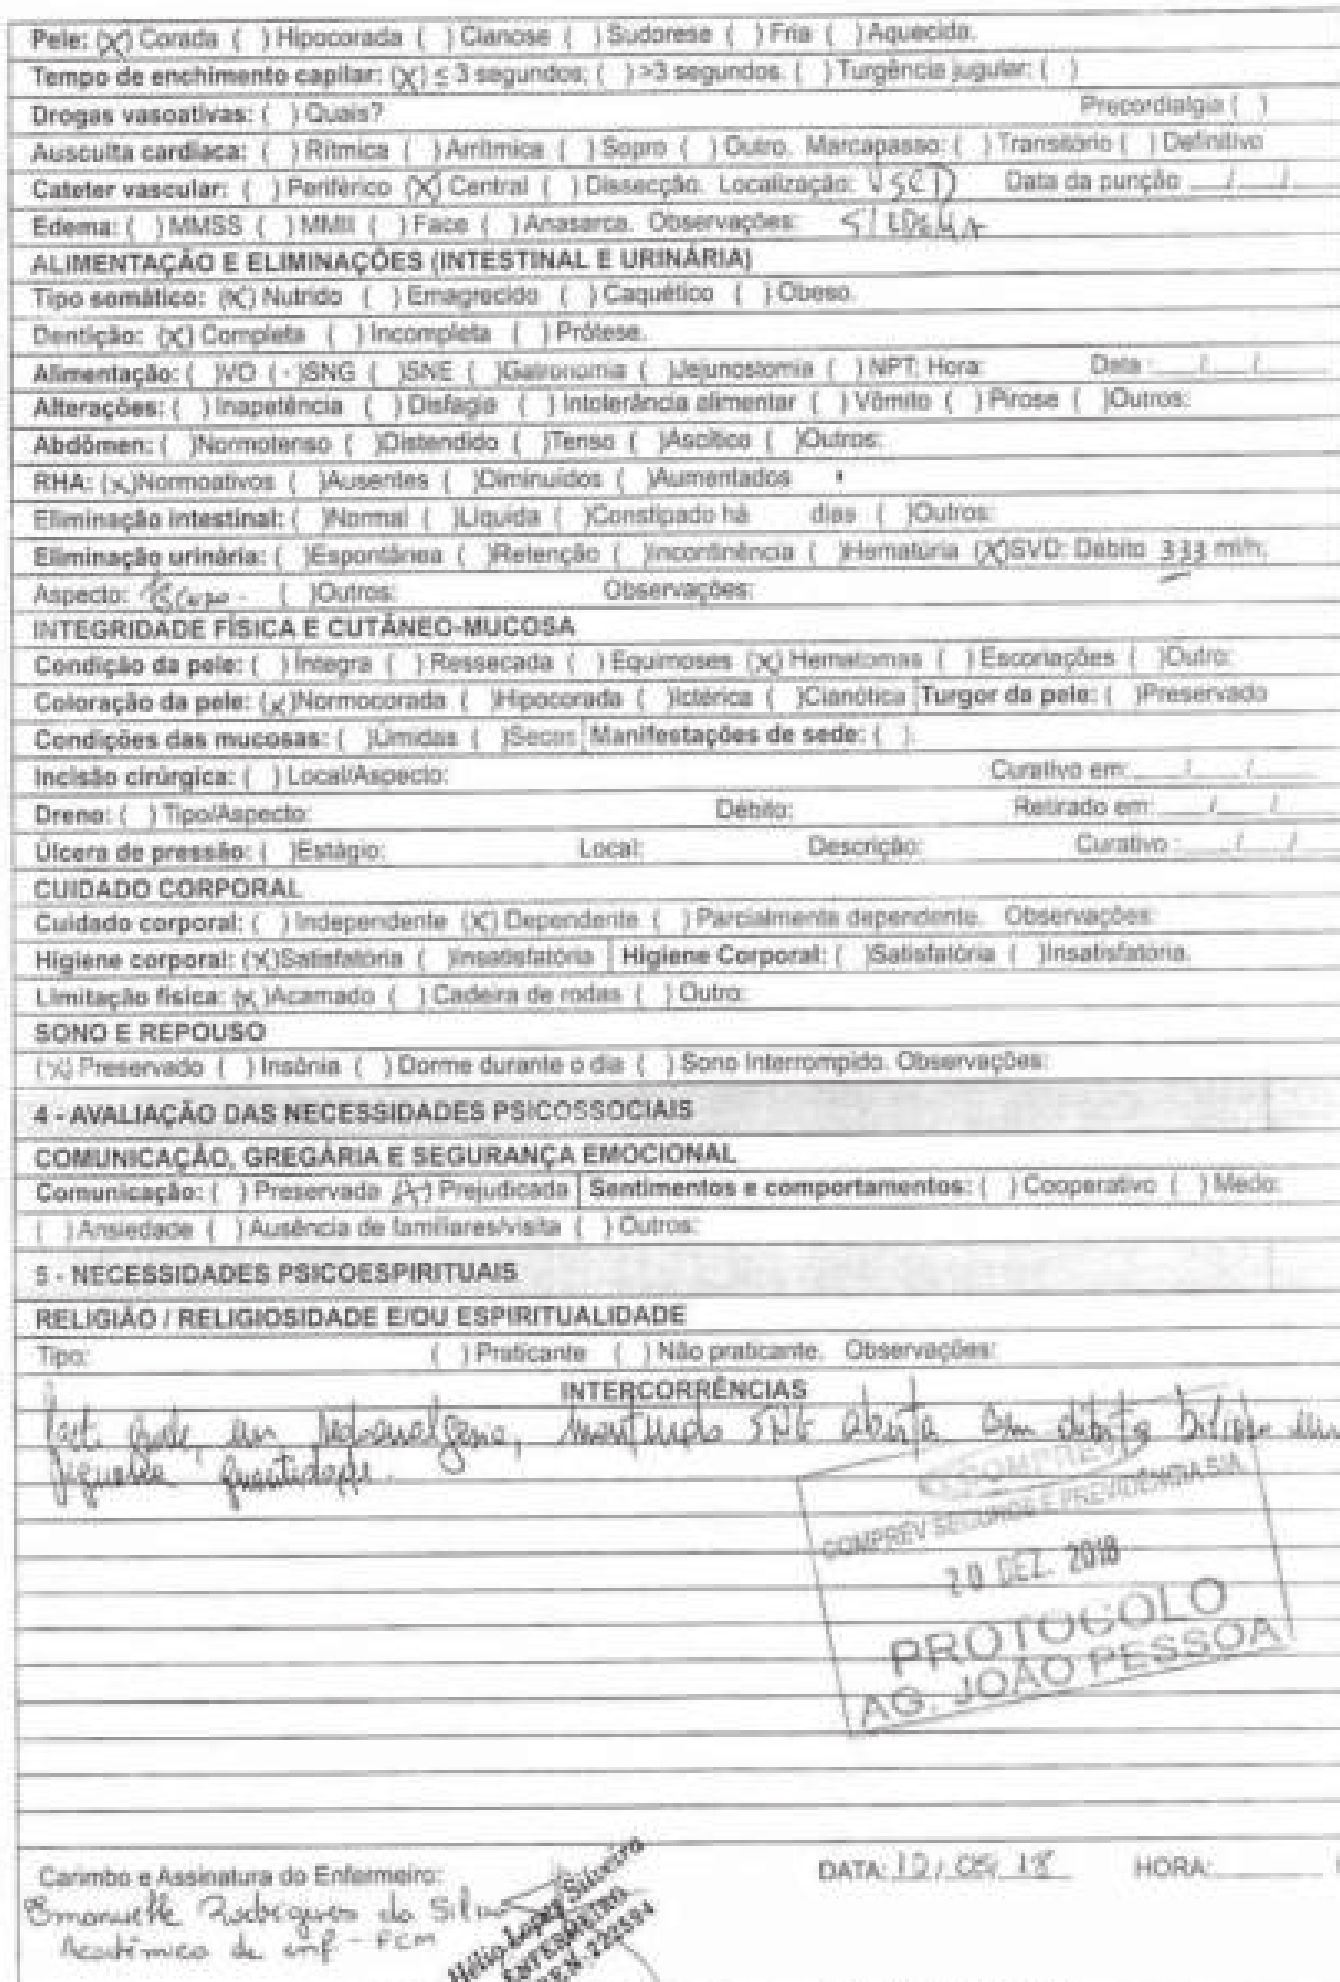 Pele: (X) Corada ( ) Hipocorada ( ) Cianose ( ) Sudorese ( ) Fria ( ) Aquecida.
Tempo de enchimento capilar: (X) ≤ 3 segundos; ( ) >3 segundos. ( ) Turgência jugular: ( )
Drogas vasoativas: ( ) Quais? Precordialgia ( )
Ausculta cardíaca: ( ) Rítmica ( ) Arrítmica ( ) Sopro ( ) Outro. Marcapasso: ( ) Transitório ( ) Definitivo
Cateter vascular: ( ) Periférico (X) Central ( ) Dissecção. Localização: VSCD Data da punção ___/___/___
Edema: ( ) MMSS ( ) MMII ( ) Face ( ) Anasarca. Observações: S/ EDEMA
ALIMENTAÇÃO E ELIMINAÇÕES (INTESTINAL E URINÁRIA)
Tipo somático: (X) Nutrido ( ) Emagrecido ( ) Caquético ( ) Obeso.
Dentição: (X) Completa ( ) Incompleta ( ) Prótese.
Alimentação: ( )VO ( - )SNG ( )SNE ( )Gatronomia ( )Jejunostomia ( ) NPT: Hora: Data: ___/___/___
Alterações: ( ) Inapetência ( ) Disfagia ( ) Intolerância alimentar ( ) Vômito ( ) Pirose ( )Outros:
Abdômen: ( )Normotenso ( )Distendido ( )Tenso ( )Ascítico ( )Outros:
RHA: (x)Normoativos ( )Ausentes ( )Diminuídos ( )Aumentados
Eliminação intestinal: ( )Normal ( )Líquida ( )Constipado há dias ( )Outros:
Eliminação urinária: ( )Espontânea ( )Retenção ( )Incontinência ( )Hematúria (X)SVD: Débito 333 ml/h;
Aspecto: ( )Outros: Observações:
INTEGRIDADE FÍSICA E CUTÂNEO-MUCOSA
Condição da pele: ( ) Íntegra ( ) Ressecada ( ) Equimoses (X) Hematomas ( ) Escoriações ( )Outro:
Coloração da pele: (x)Normocorada ( )Hipocorada ( )Ictérica ( )Cianótica Turgor da pele: ( )Preservado
Condições das mucosas: ( )Úmidas ( )Secas Manifestações de sede: ( ).
Incisão cirúrgica: ( ) Local/Aspecto: Curativo em: ___/___/___
Dreno: ( ) Tipo/Aspecto: Débito: Retirado em: ___/___/___
Úlcera de pressão: ( )Estágio: Local: Descrição: Curativo: ___/___/___
CUIDADO CORPORAL
Cuidado corporal: ( ) Independente (X) Dependente ( ) Parcialmente dependente. Observações:
Higiene corporal: (X)Satisfatória ( )Insatisfatória Higiene Corporal: ( )Satisfatória ( )Insatisfatória.
Limitação física: (x)Acamado ( ) Cadeira de rodas ( ) Outro:
SONO E REPOUSO
(X) Preservado ( ) Insônia ( ) Dorme durante o dia ( ) Sono Interrompido. Observações:
4 - AVALIAÇÃO DAS NECESSIDADES PSICOSSOCIAIS
COMUNICAÇÃO, GREGÁRIA E SEGURANÇA EMOCIONAL
Comunicação: ( ) Preservada (X) Prejudicada Sentimentos e comportamentos: ( ) Cooperativo ( ) Medo:
( ) Ansiedade ( ) Ausência de familiares/visita ( ) Outros:
5 - NECESSIDADES PSICOESPIRITUAIS
RELIGIÃO / RELIGIOSIDADE E/OU ESPIRITUALIDADE
Tipo: ( ) Praticante ( ) Não praticante. Observações:
INTERCORRÊNCIAS
em sedoanalgesia, SNG aberta com débito bilioso em
pequena quantidade.
COMPREV
COMPREV SEGUROS E PREVIDÊNCIA S/A
20 DEZ. 2018
PROTOCOLO
AG. JOÃO PESSOA
Carimbo e Assinatura do Enfermeiro: DATA: 12/ /18 HORA:
Emanuelle Rodrigues da Silva
Acadêmica de enf - FCM
Hélio Lopes Silveira
ENFERMEIRO